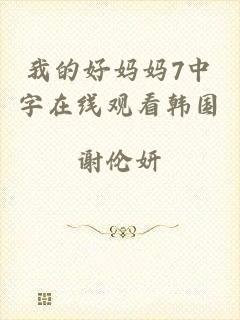 我的好妈妈7中
字在线观看韩国
谢伦妍